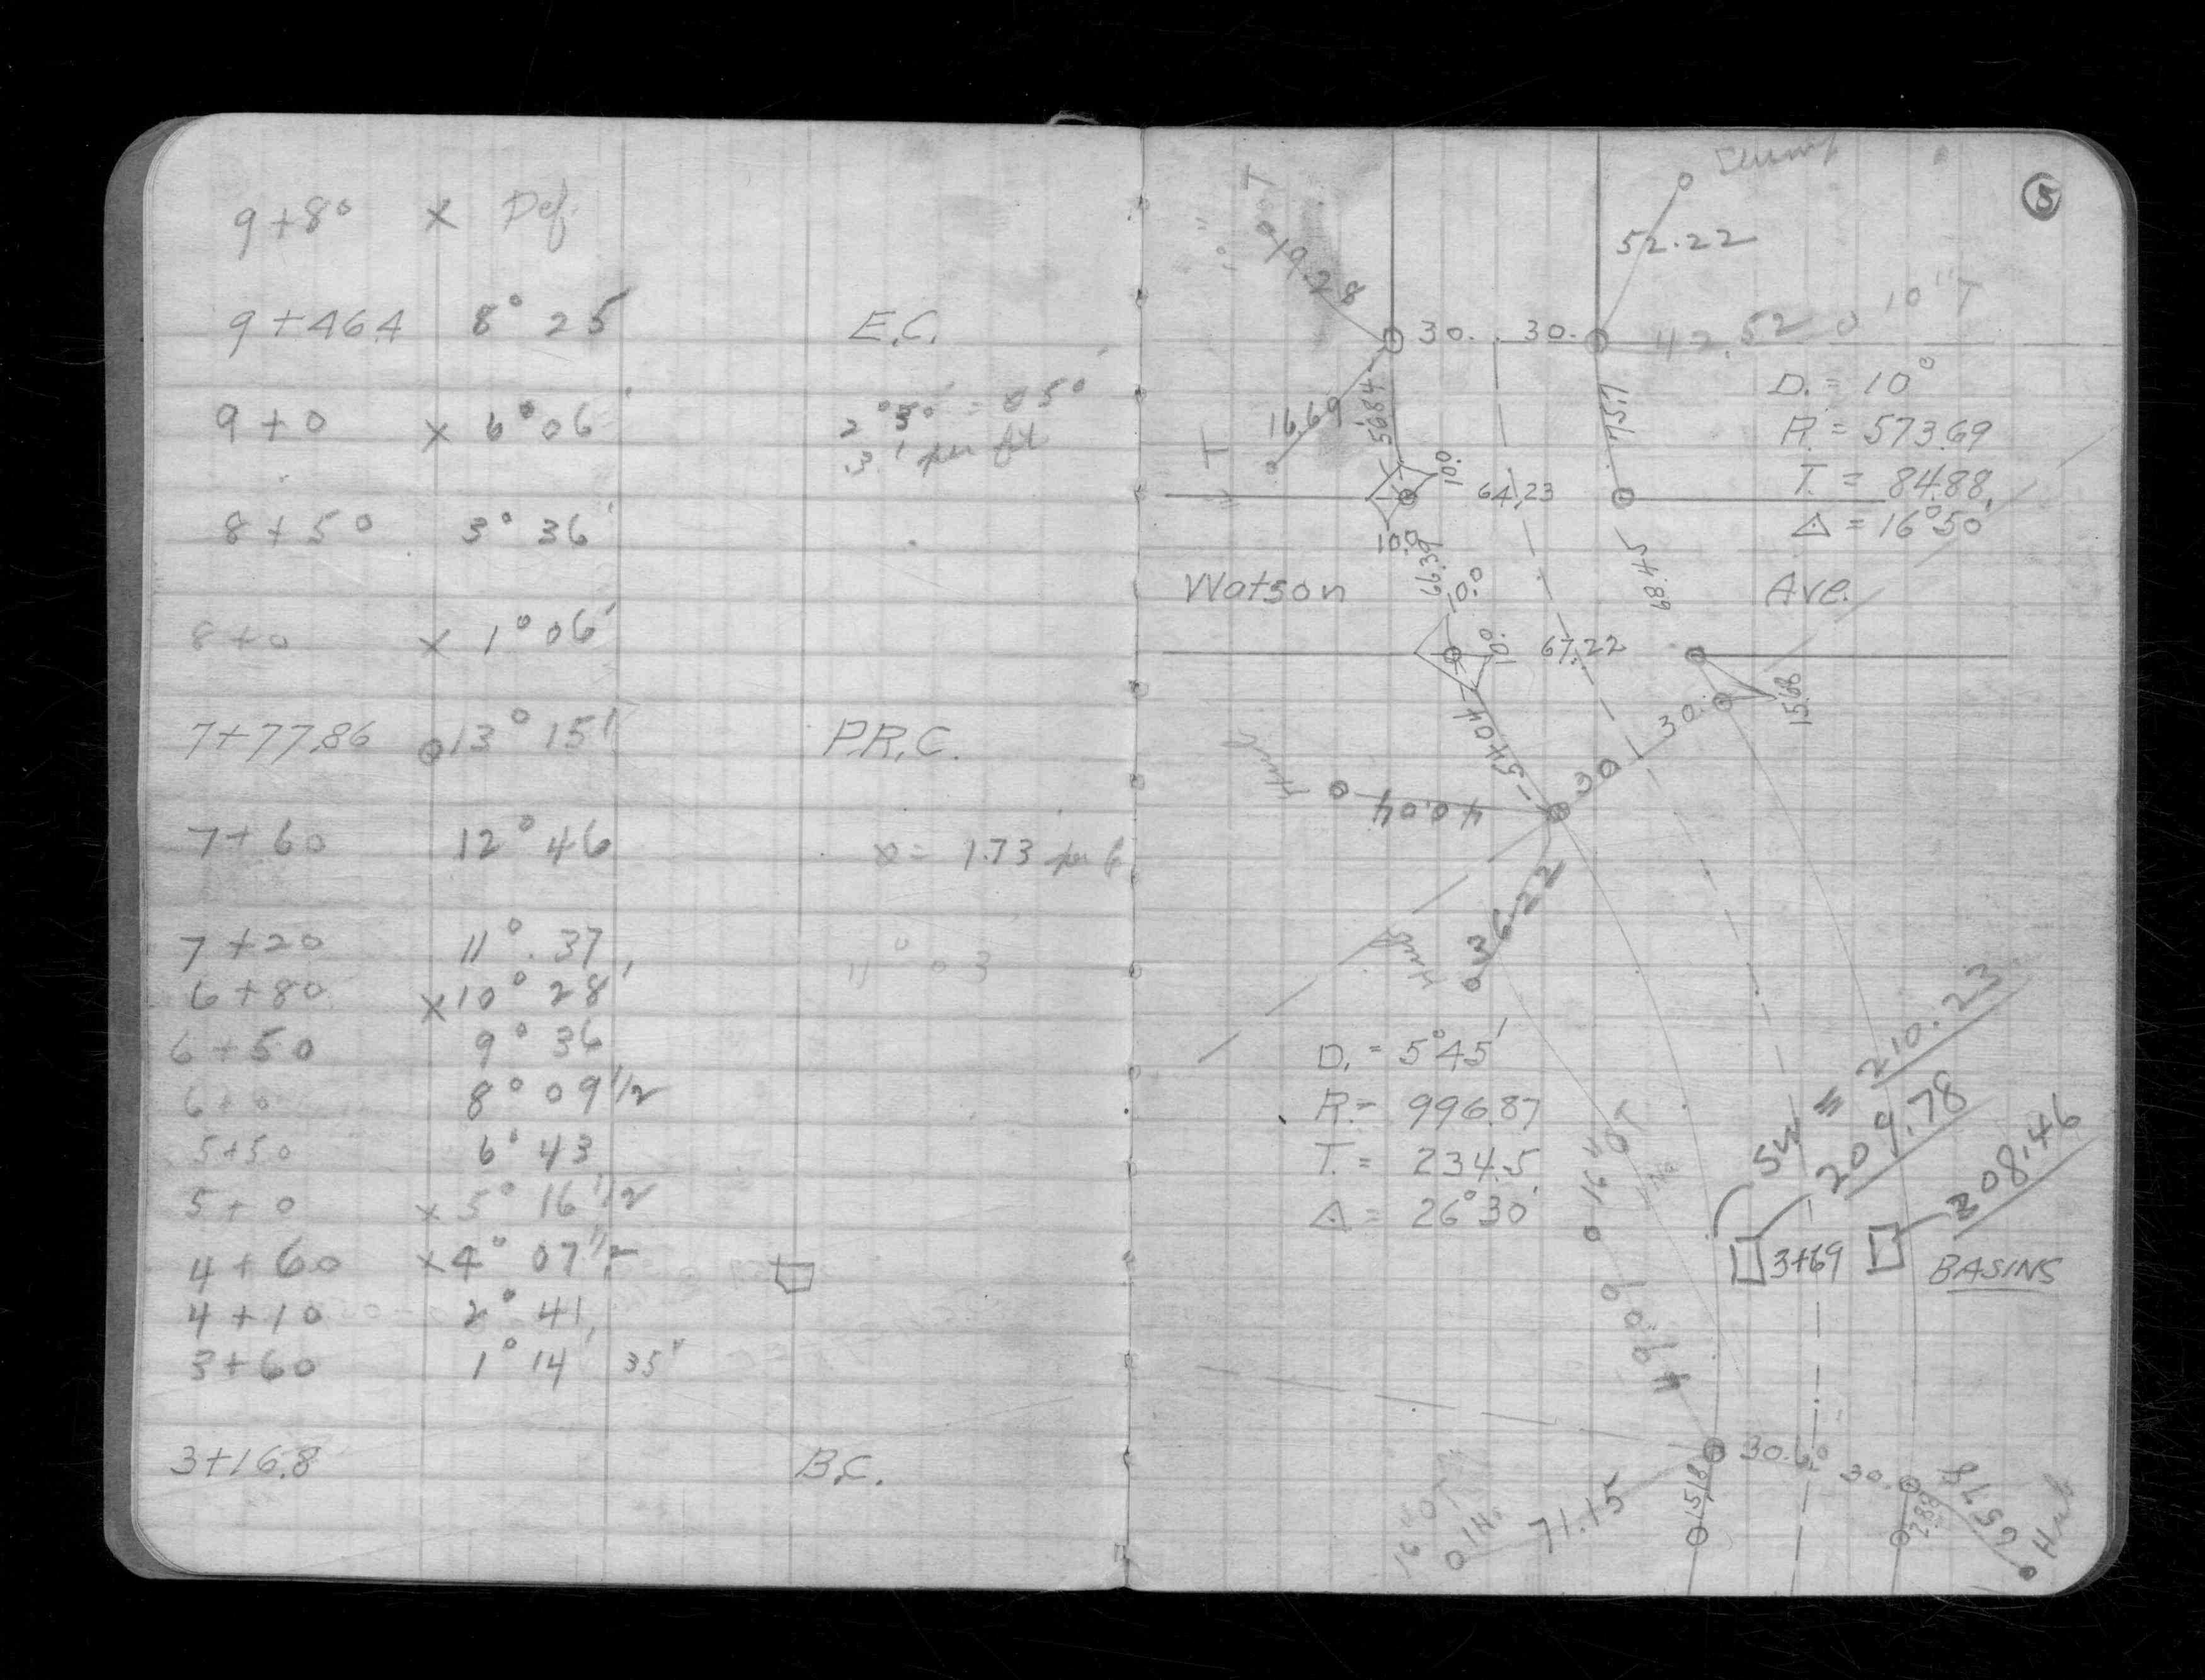 9+80 x Def.
9+46.4 8° 25' E.C.
9+0 x 6° 06' 2° 30' = 0 50
.3' per
8+50 3° 36'
8+0 x 1° 06'
7+77.86 13° 15' P.R.C.
7+60 12° 46 = 1.73 per
7+20 11° 37' 11° 03
6+80 x 10° 28'
6+50 9° 36
6+0 8° 09 1/2
5+50 6° 43
5+0 x 5° 16 1/2
4+60 x 4° 07 1/2
4+10 2° 41'
3+60 1° 14' 35"
3+16.8 B.C.
5
52.22
19.28
30. 30. 42.52 10" T
D. = 10°
R. = 573.69
T. = 84.88
Δ = 16°50'
16.69
56.84
75.17
10.0
64.23
10.0
66.39
68.45
Watson Ave.
10.0
10.0
67.22
15.68
54.04
30.
30
Hub
40.04
36.22
Hub
D. = 5°45'
R = 996.87
T. = 234.5
Δ = 26°30'
SW = 210.23
209.78
208.46
16" OT
3+69
BASINS
49.09
30. 6°
30.
16" OT
71.15
15.18
2.88
65.78
Hub